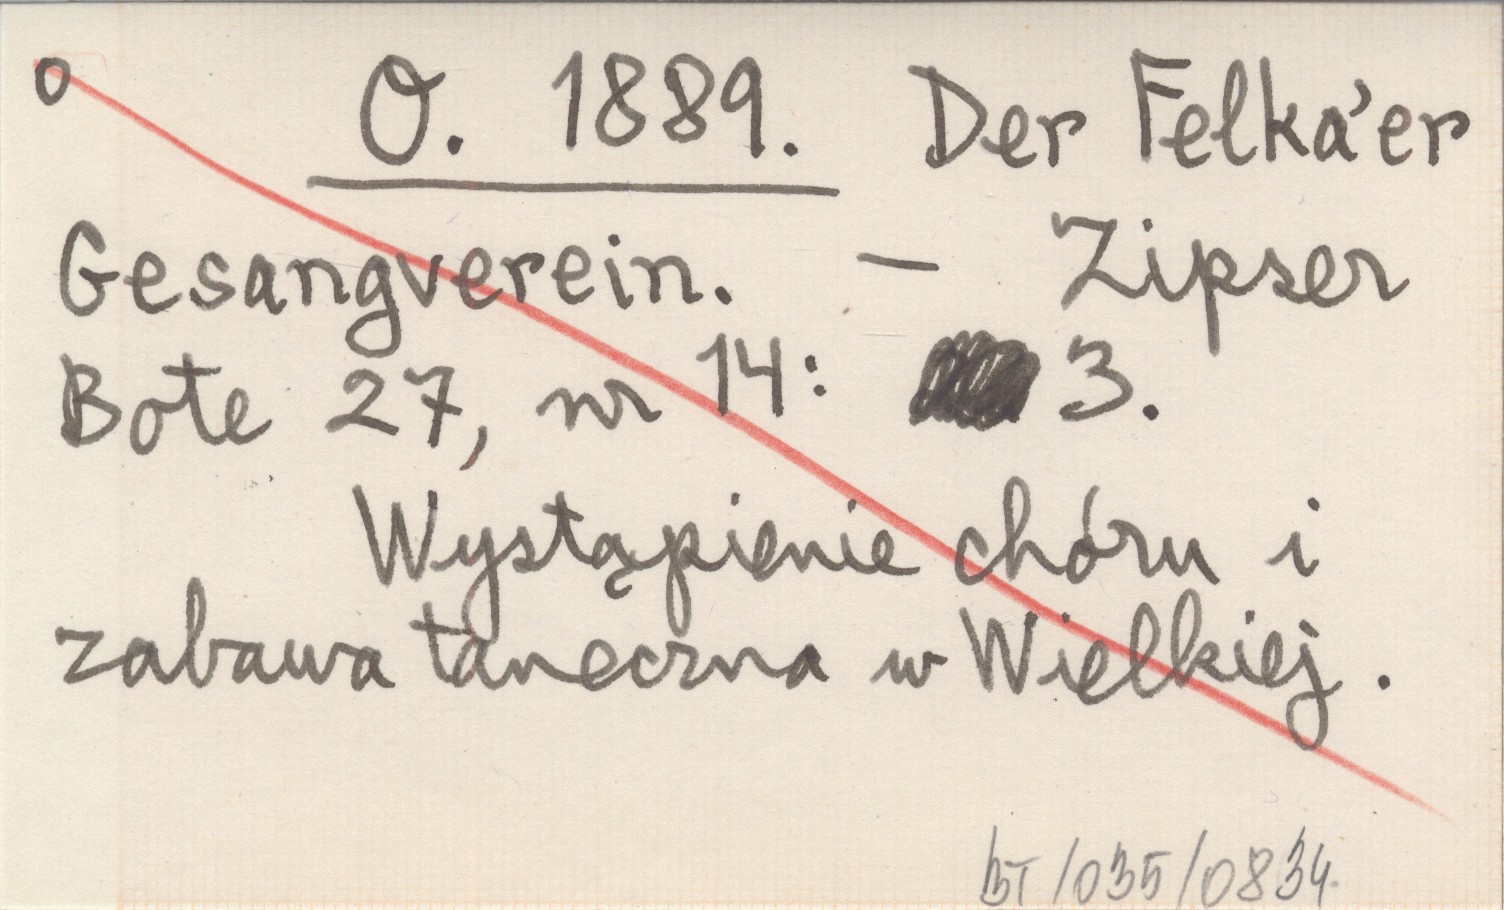 o O. 1889. Der Felka'er
Gesangverein. — Zipser
Bote 27, nr 14: 3.
Wystąpienie chóru i
zabawa taneczna w Wielkiej.
BT/035/0834